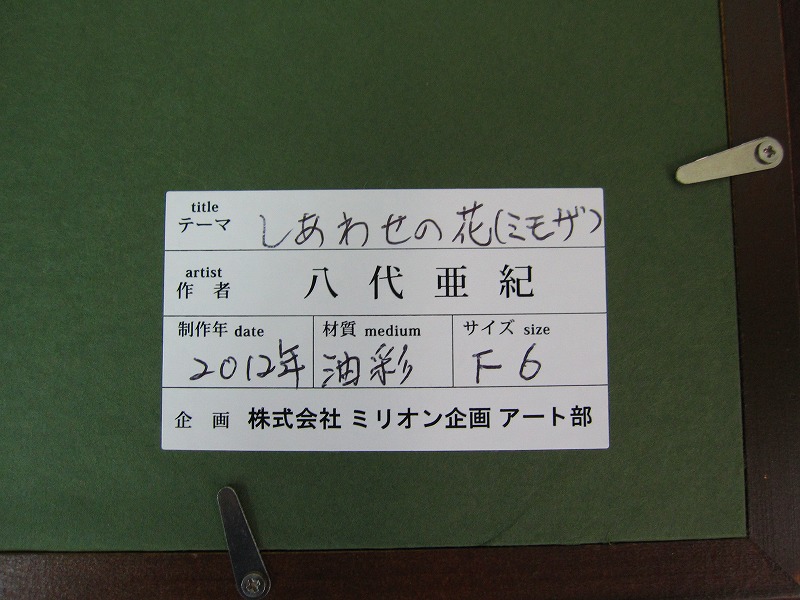 title
テーマ しあわせの花(ミモザ)
artist
作者 八代亜紀
制作年 date 材質 medium サイズ size
2012年 油彩 F6
企画 株式会社 ミリオン企画 アート部